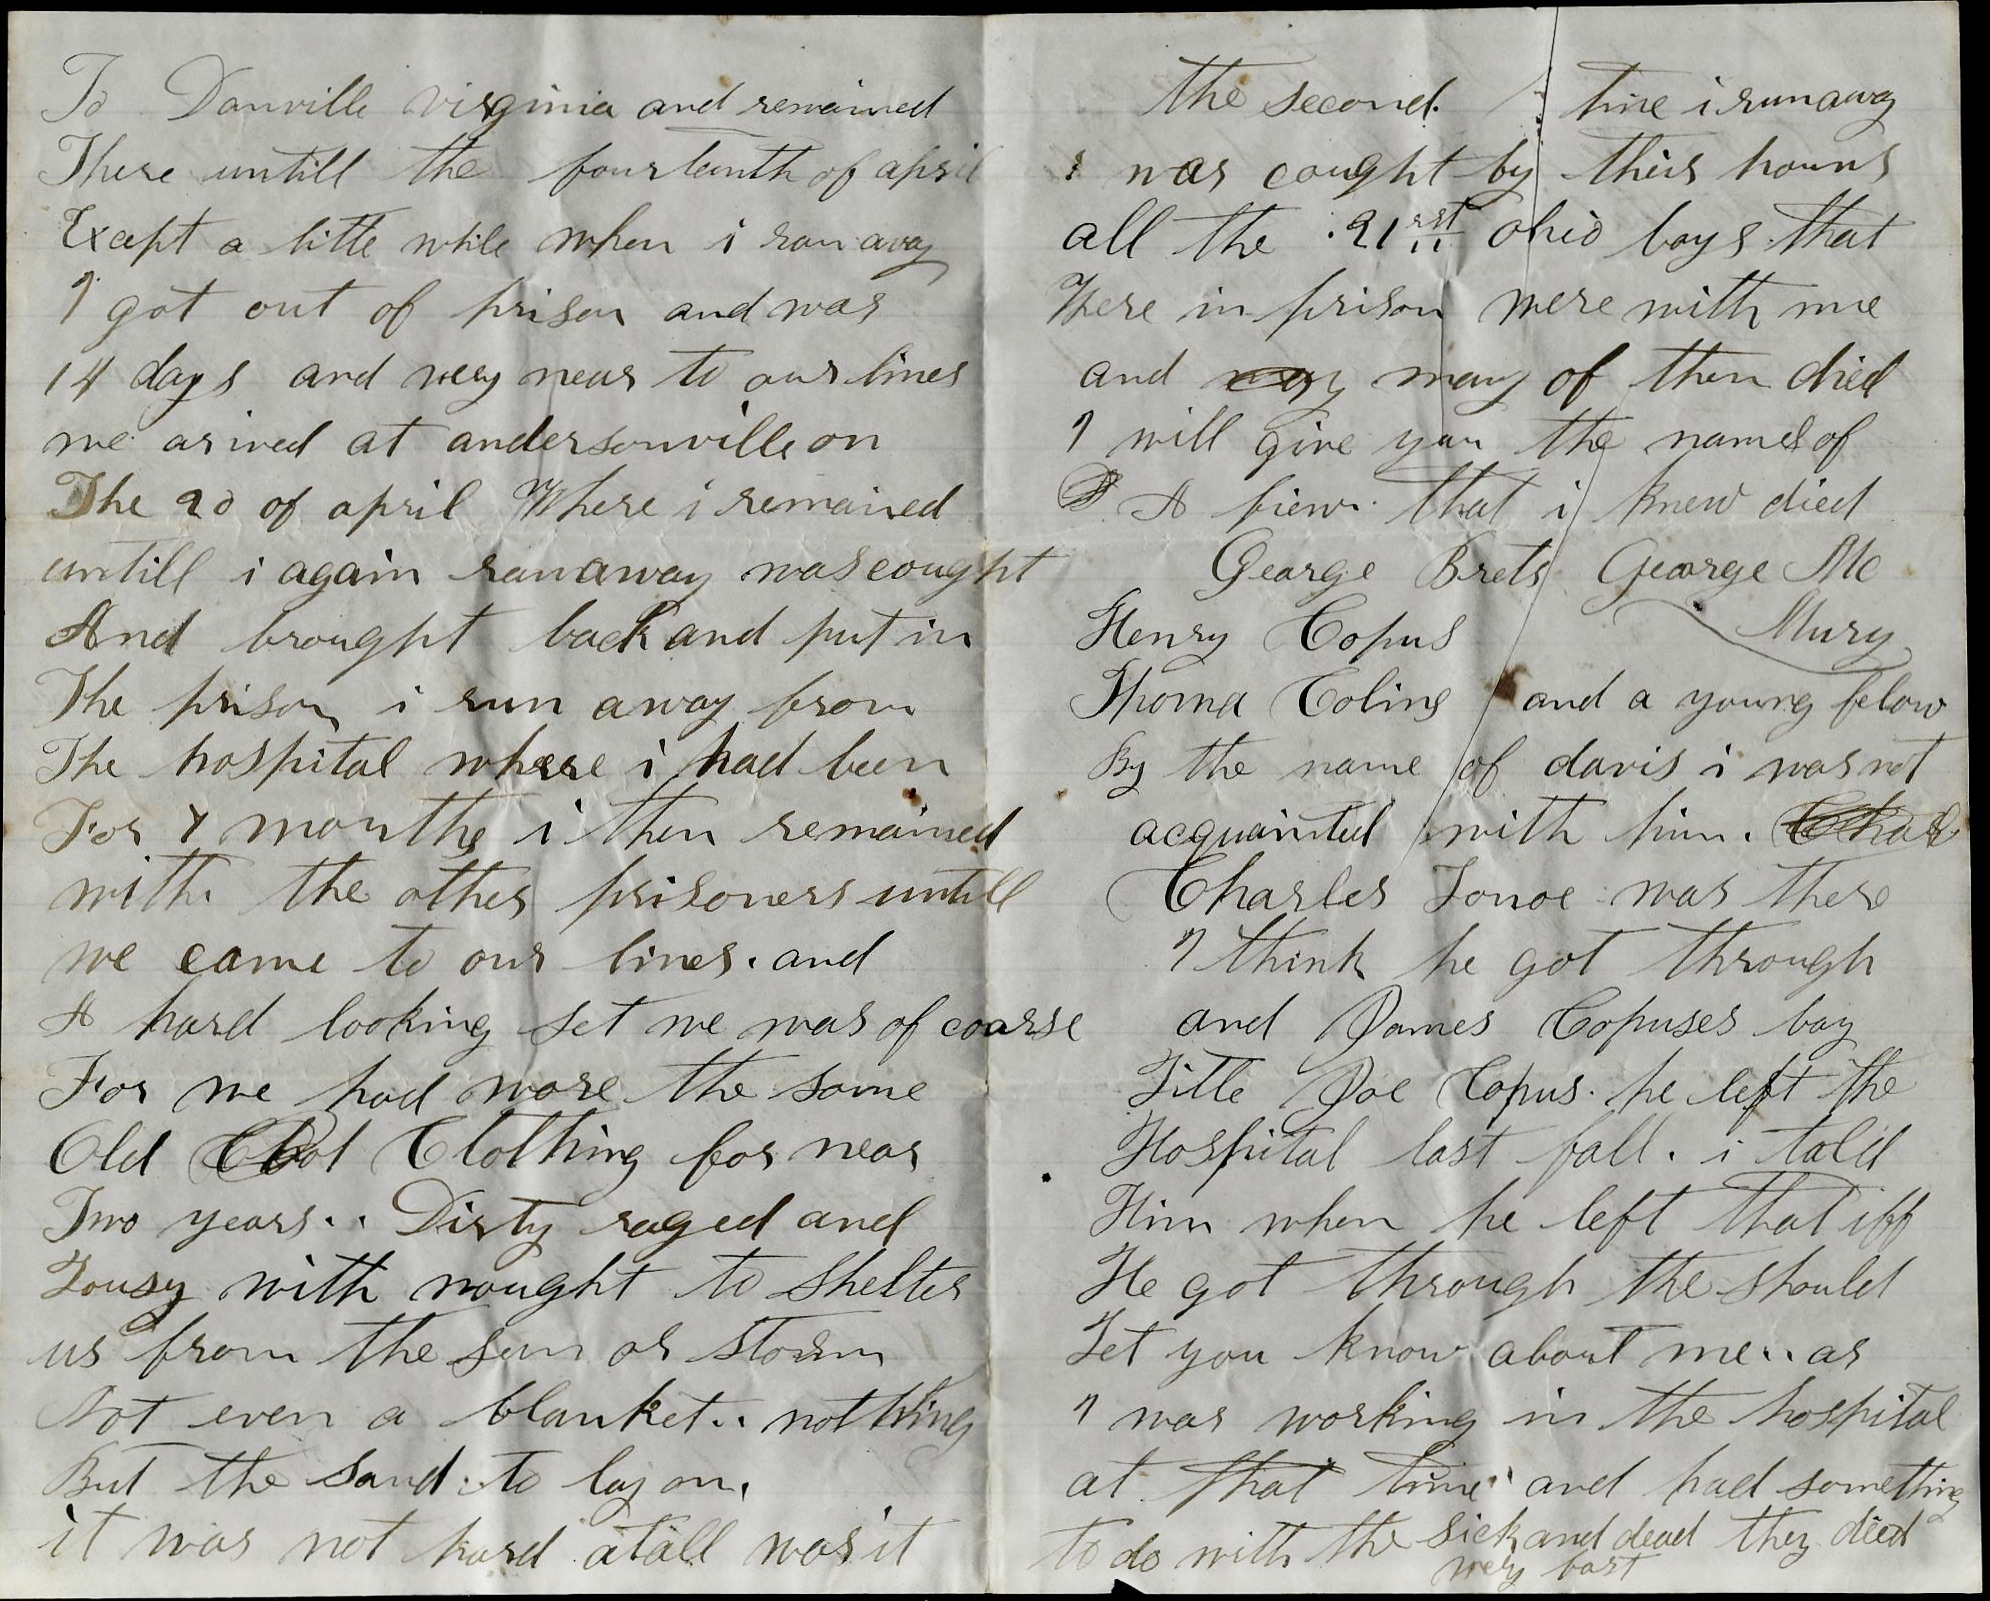 To Danville virginia and remained
There untill the fourteenth of april
Except a little while when i ran away
I got out of prison and was
14 days and very near to our lines
we arived at andersonville on
The 20 of april Where i remained
untill i again ran away was cought
And brought back and put in
The prison i run away from
The hospital where i had been
For months i then remained
with the other prisoners untill
we came to our lines. and
A hard looking set we was of coarse
For we had wore the same
Old Clothing for near
Two years.. Dirty raged and
Lousy with nought to shelter
us from the sun or storm
Not even a blanket.. nothing
But the sand to lay on.
it was not hard atall was it
the second. time i run away
I was cought by their houns
all the 21rst ohio boys that
Were in prison were with me
and many of them died
I will give you the names of
A fiew that i knew died
George Brets George Mc
Henry Copus Mury
Thoma Colins and a young felow
By the name of davis i was not
acquainted with him. Char
Charles Lonoe was there
I think he got through
and James Copuses boy
Little Joe Copus. he left the
Hospital last fall. i told
Him when he left that iff
He got through the should
Let you know about me.. as
I was working in the hospital
at that time and had something
to do with the sick and dead they died
very fast